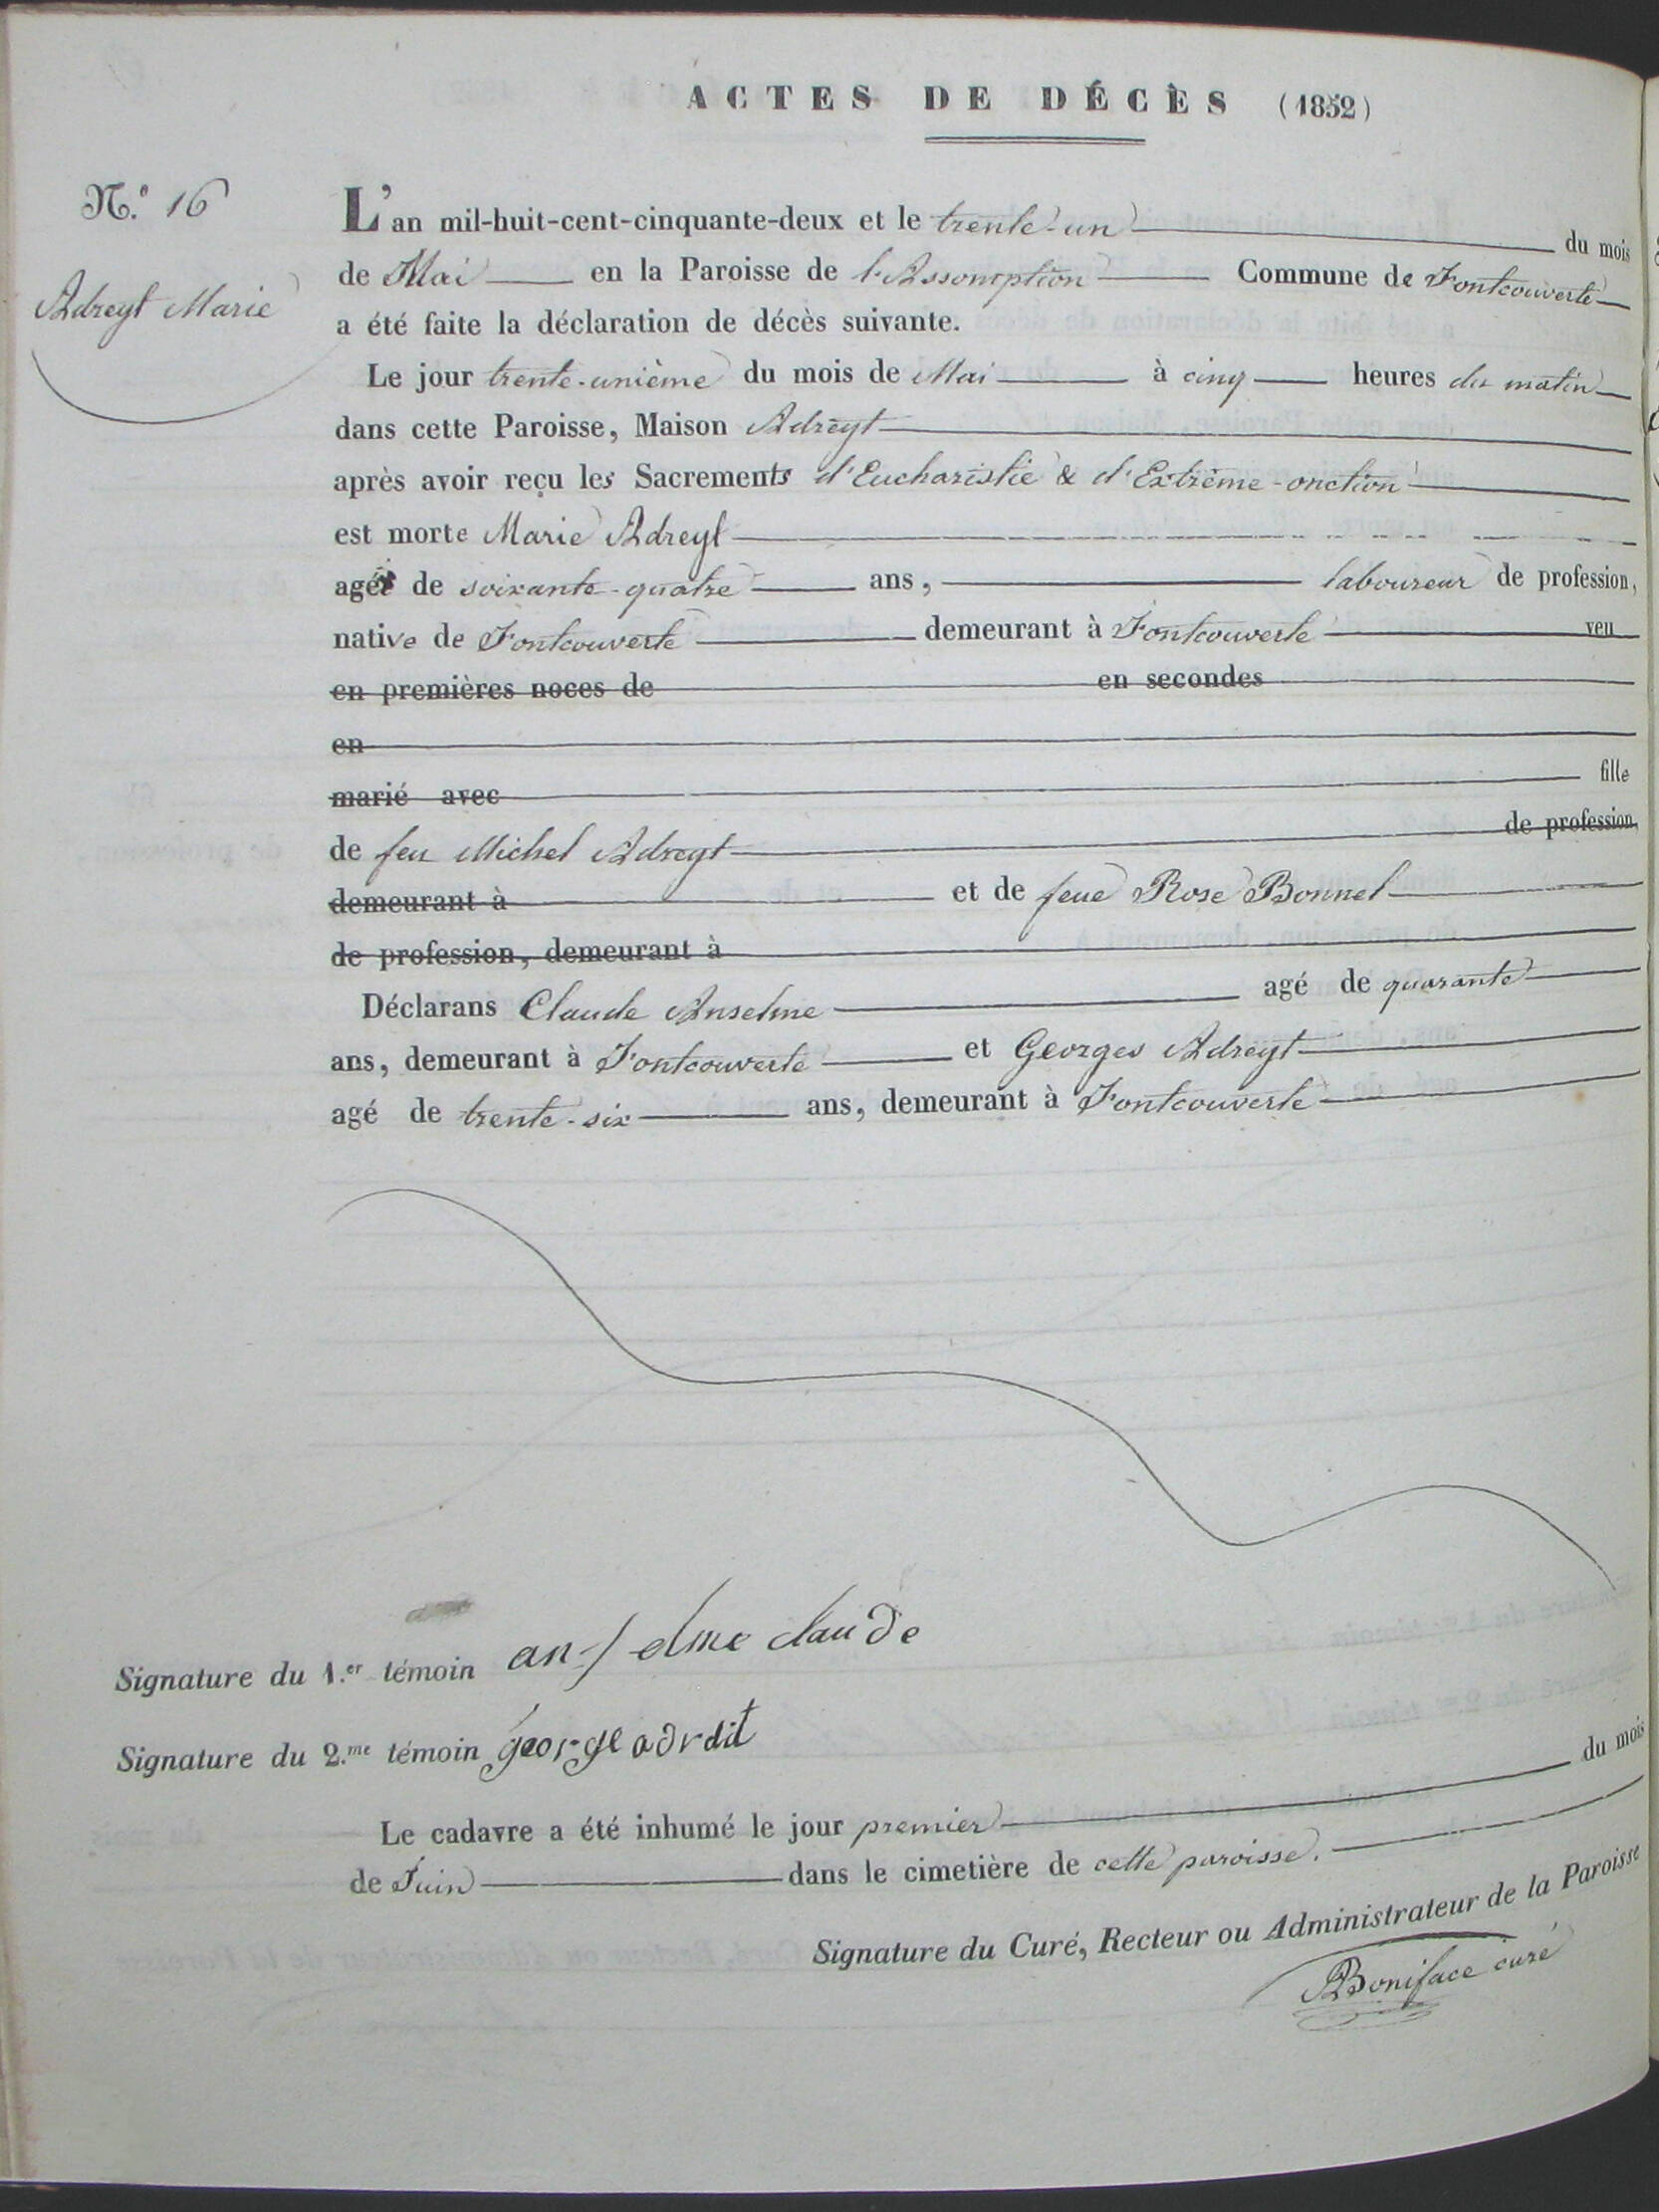 ACTES DE DÉCÈS (1852)
N.° 16
Adreyt Marie
L'an mil-huit-cent-cinquante-deux et le trente-un du mois
de Mai en la Paroisse de l'Assomption Commune de Fontcouverte
a été faite la déclaration de décès suivante.
Le jour trente-unième du mois de Mai à cinq heures du matin
dans cette Paroisse, Maison Adreyt
après avoir reçu les Sacrements d'Eucharistie & d'Extrême-onction
est morte Marie Adreyt
agée de soixante-quatre ans, laboureur de profession,
native de Fontcouverte demeurant à Fontcouverte veu
en premières noces de en secondes
en
marié avec fille
de feu Michel Adreyt de profession,
demeurant à et de feue Rose Bonnel
de profession, demeurant à
Déclarans Claude Anselme agé de quarante
ans, demeurant à Fontcouverte et Georges Adreyt
agé de trente-six ans, demeurant à Fontcouverte
Signature du 1.er témoin anselme claude
Signature du 2.me témoin george adrdit
Le cadavre a été inhumé le jour premier du mois
de Juin dans le cimetière de cette paroisse.
Signature du Curé, Recteur ou Administrateur de la Paroisse
Boniface curé